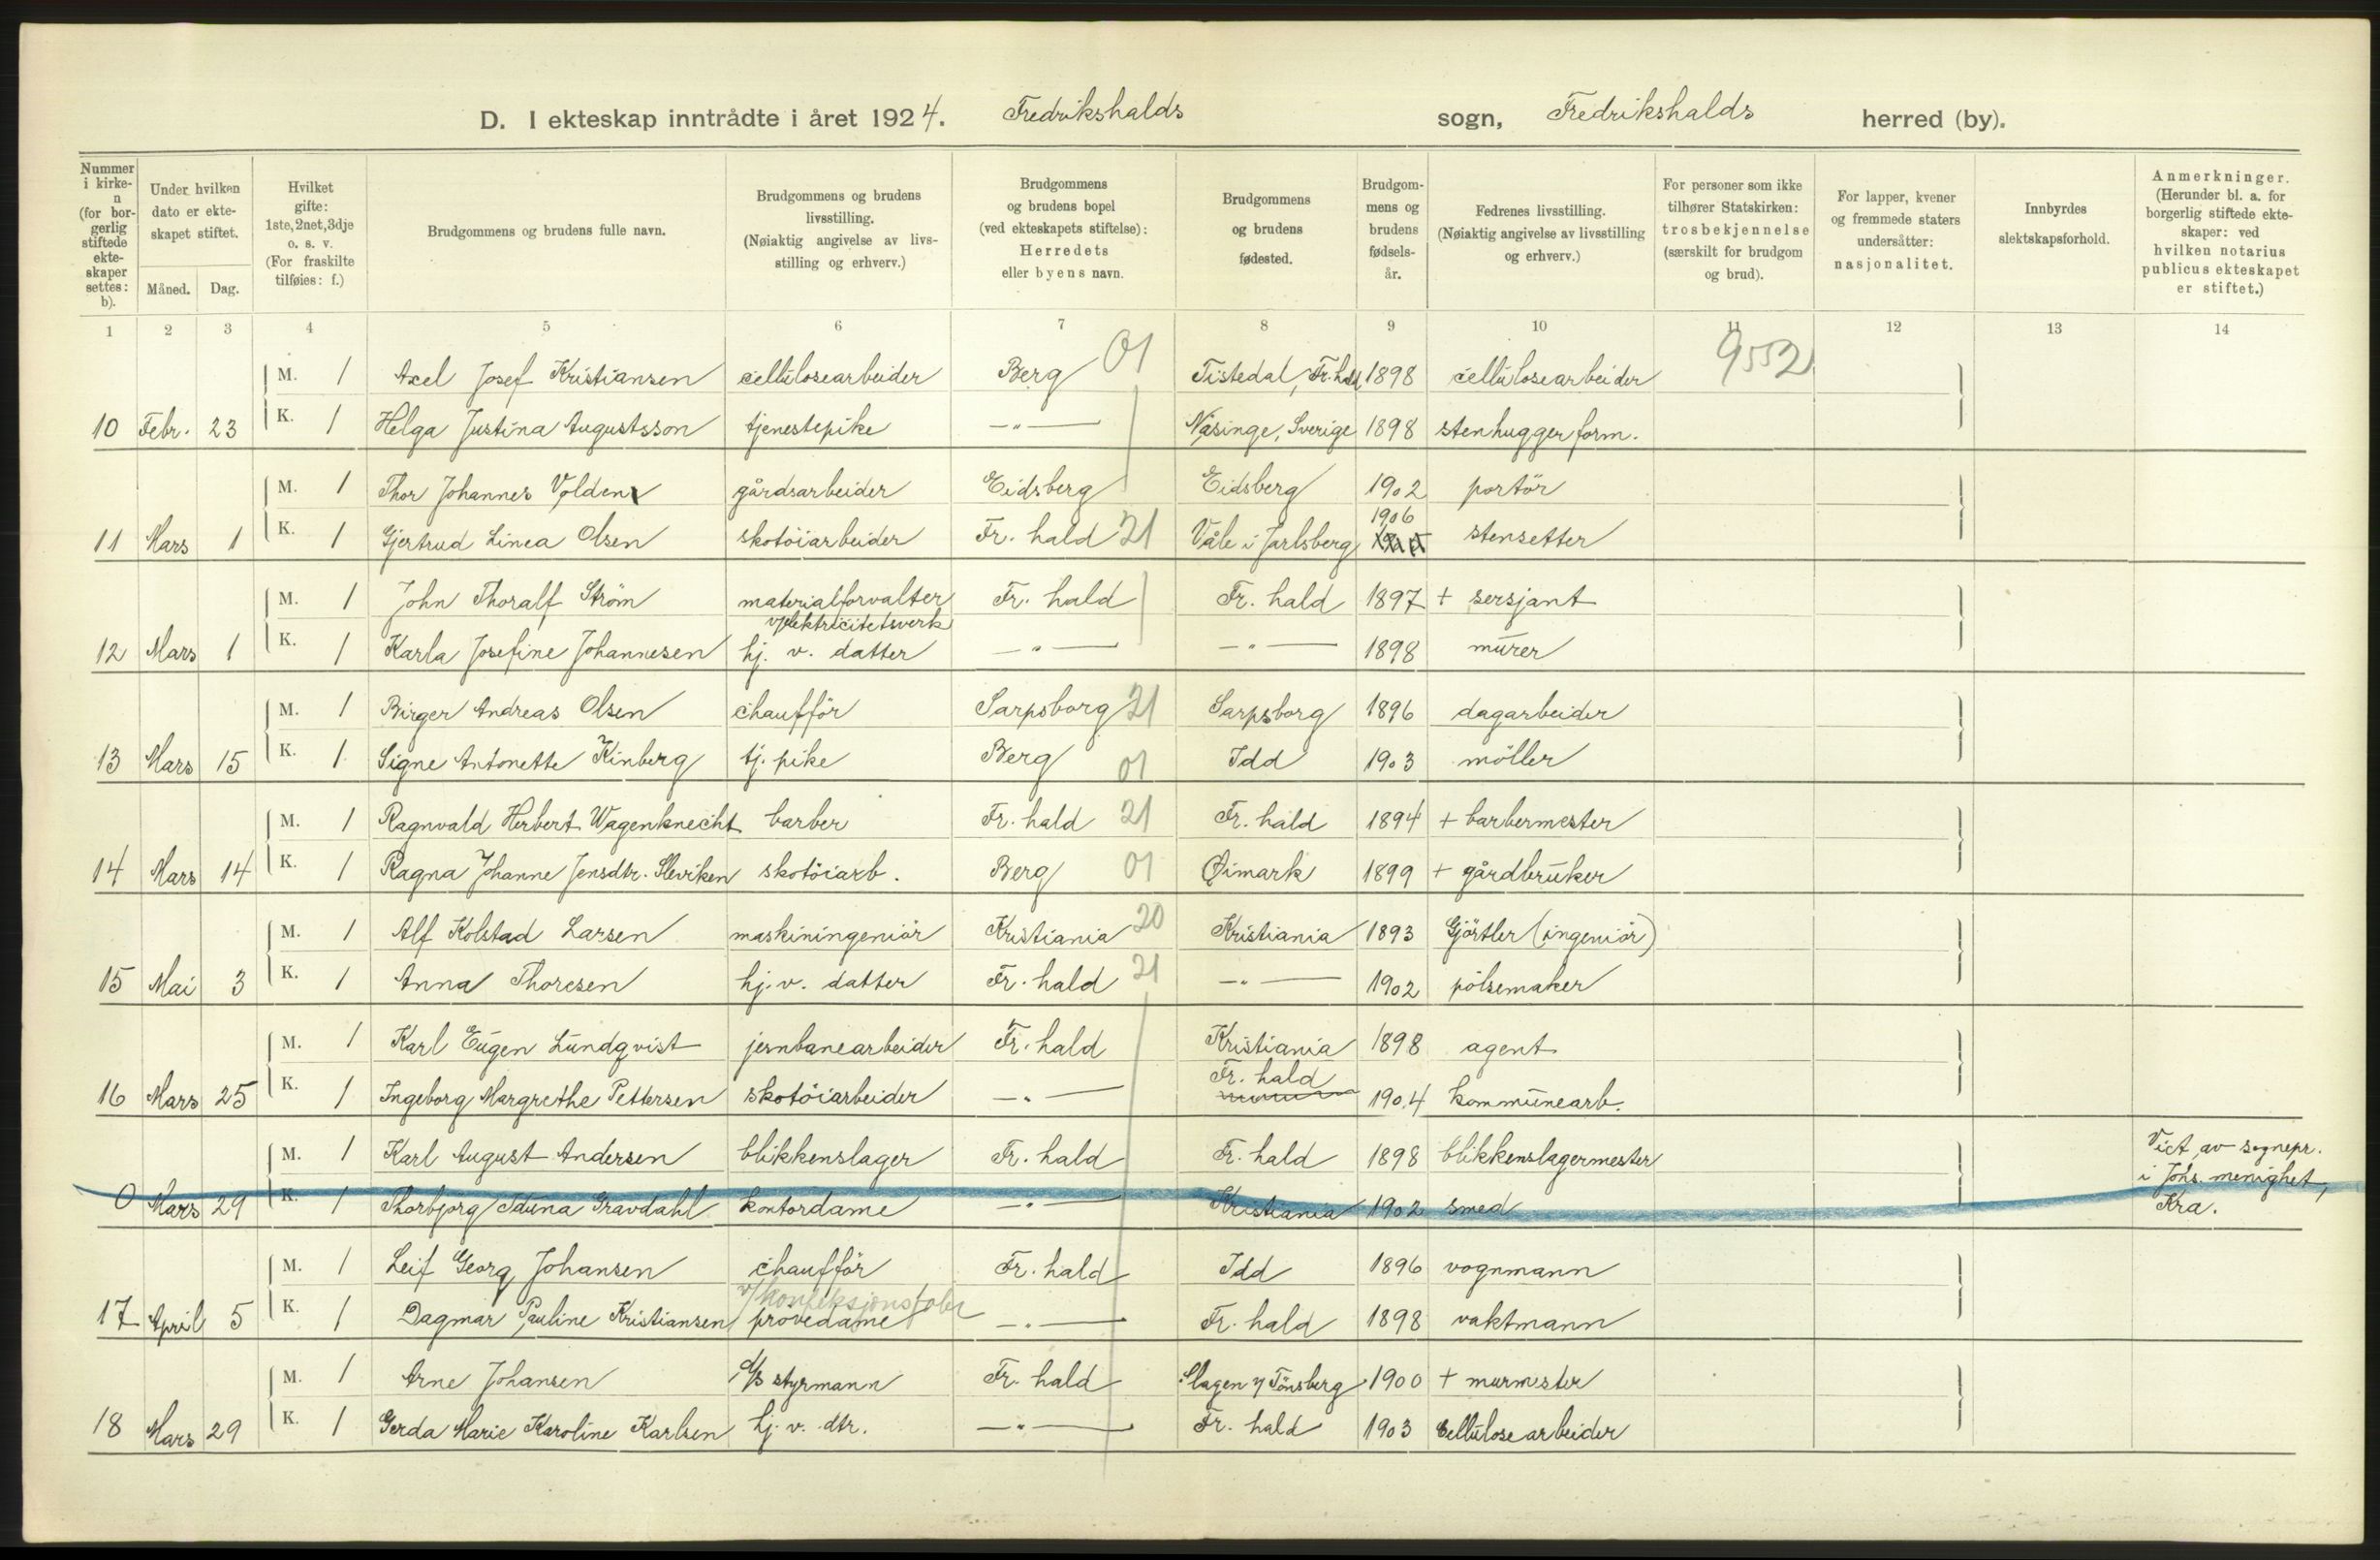 D. I ekteskap inntrådte i året 1924. Fredrikshalds sogn, Fredrikshalds herred (by).
Nummer i kirke- n (for bor- gerlig stiftede ekte- skaper settes: b).
Under hvilken dato er ekte- skapet stiftet.
Måned. Dag.
Hvilket gifte: 1ste, 2net, 3dje o. s. v. (For fraskilte tilføies: f.)
Brudgommens og brudens fulle navn.
Brudgommens og brudens livsstilling. (Nøiaktig angivelse av livs- stilling og erhverv.)
Brudgommens og brudens bopel (ved ekteskapets stiftelse): Herredets eller byens navn.
Brudgommens og brudens fødested.
Brudgom- mens og brudens fødsels- år.
Fedrenes livsstilling. (Nøiaktig angivelse av livsstilling og erhverv.)
For personer som ikke tilhører Statskirken: trosbekjennelse (særskilt for brudgom og brud).
For lapper, kvener og fremmede staters undersåtter: nasjonalitet.
Innbyrdes slektskapsforhold.
Anmerkninger. (Herunder bl. a. for borgerlig stiftede ekte- skaper: ved hvilken notarius publicus ekteskapet er stiftet.)
1 2 3 4 5 6 7 8 9 10 11 12 13 14
M. 1 Axel Josef Kristiansen cellulosearbeider Berg 01 Tistedal, Fr.hald 1898 cellulosearbeider 9552
10 Febr. 23 K. 1 Helga Justina Augustsson tjenestepike —"— Näsinge, Sverige 1898 stenhuggerform.
M. 1 Thor Johannes Volden gårdsarbeider Eidsberg Eidsberg 1902 portör
1906
11 Mars 1 K. 1 Gjertrud Linea Olsen skotöiarbeider Fr. hald 21 Våle i Jarlsberg stensetter
M. 1 John Thoralf Ström materialforvalter Fr. hald Fr. hald 1897 + sersjant
v/elektricitetsverk
12 Mars 1 K. 1 Karla Josefine Johannesen hj. v. datter —"— —"— 1898 murer
M. 1 Birger Andreas Olsen chaufför Sarpsborg 21 Sarpsborg 1896 dagarbeider
13 Mars 15 K. 1 Signe Antonette Kinberg tj. pike Berg 01 Idd 1903 möller
M. 1 Ragnvald Herbert Wagenknecht barber Fr. hald 21 Fr. hald 1894 + barbermester
14 Mars 14 K. 1 Ragna Johanne Jensdtr. Sleviken skotöiarb. Berg 01 Øimark 1899 + gårdbruker
M. 1 Alf Kolstad Larsen maskiningeniör Kristiania 20 Kristiania 1893 Gjörtler (ingeniör)
15 Mai 3 K. 1 Anna Thoresen hj. v. datter Fr. hald 21 —"— 1902 pölsemaker
M. 1 Karl Eugen Lundqvist jernbanearbeider Fr. hald Kristiania 1898 agent
Fr. hald
16 Mars 25 K. 1 Ingeborg Margrethe Pettersen skotöiarbeider —"— 1904 kommunearb.
M. 1 Karl August Andersen blikkenslager Fr. hald Fr. hald 1898 blikkenslagermester Viet av sognepr.
i Johs. menighet,
0 Mars 29 K. 1 Thorbjørg Iduna Gravdahl kontordame —"— Kristiania 1902 smed Kra.
M. 1 Leif Georg Johansen chaufför Fr. hald Idd 1896 vognmann
17 April 5 K. 1 Dagmar Pauline Kristiansen prövedame —"— Fr. hald 1898 vaktmann
M. 1 Arne Johansen styrmann Fr. hald Slagen v/ Tönsberg 1900 + murmester
18 Mars 29 K. 1 Gerda Marie Karoline Karlsen hj. v. dtr. —"— Fr. hald 1903 cellulosearbeider